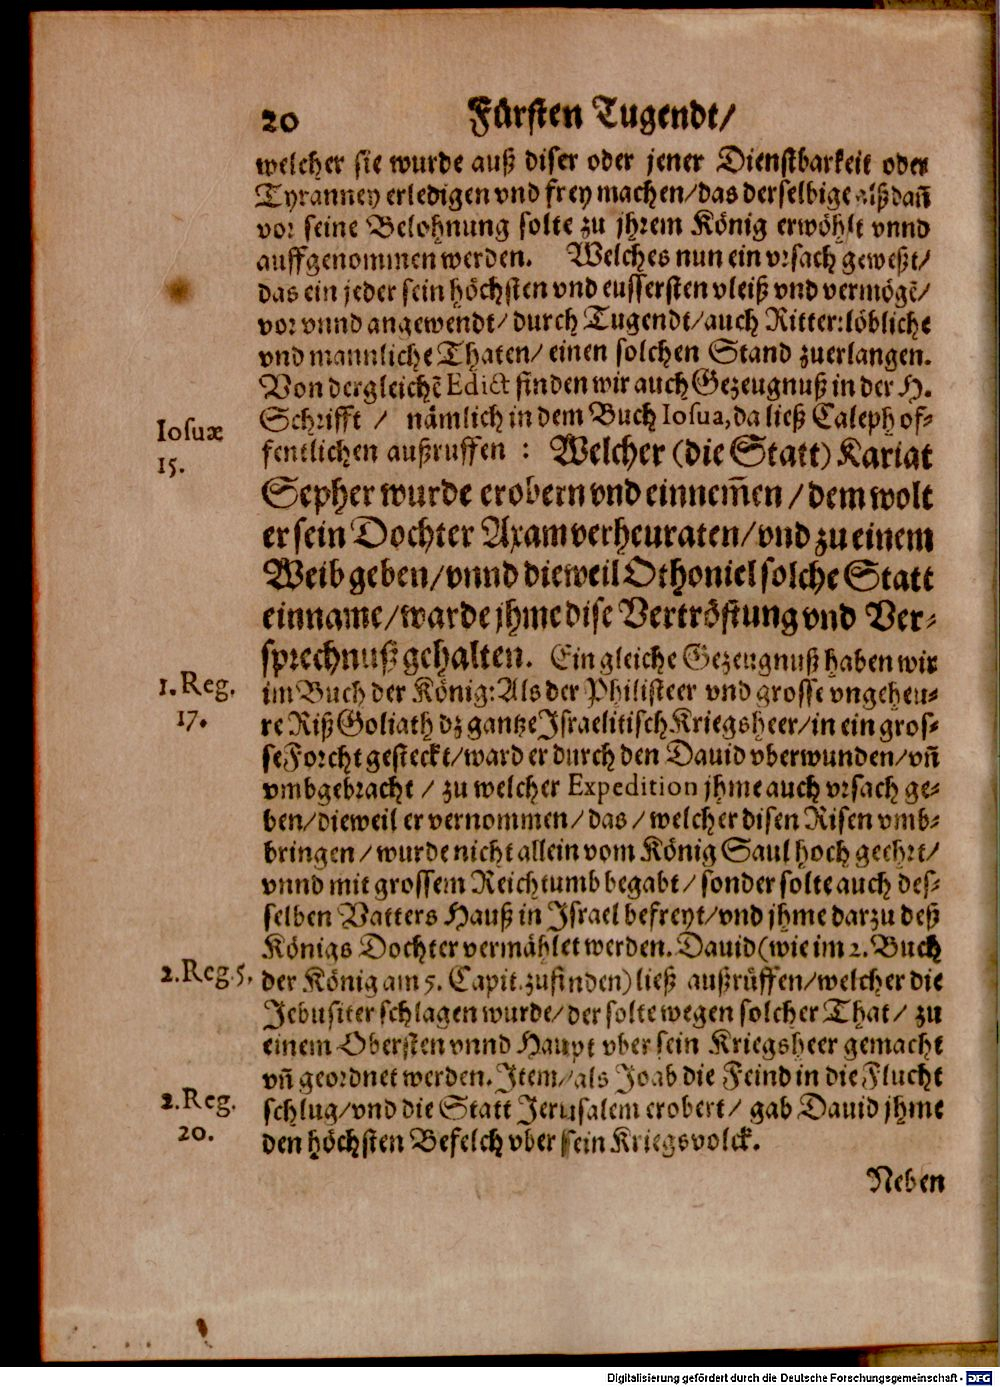 20 Fürsten Tugendt/
welcher sie wurde auß diser oder jener Dienstbarkeit oder
Tyranney erledigen vnd frey machen/das derselbige alßdañ
vor seine Belohnung solte zu jhrem König erwöhlt vnnd
auffgenommen werden. Welches nun ein vrsach geweßt/
das ein jeder sein höchsten vnd eussersten vleiß vnd vermögẽ/
vor vnnd angewendt/durch Tugendt/auch Ritter:löbliche
vnd mannliche Thaten/einen solchen Stand zuerlangen.
Von dergleichẽ Edict finden wir auch Gezeugnuß in der H.
Schrifft / nämlich in dem Buch Iosua, da ließ Caleph of-
Iosuæ
15.
fentlichen außruffen : Welcher (die Statt) Kariat
Sepher wurde erobern vnd einnem̃en/dem wolt
er sein Dochter Axam verheuraten/vnd zu einem
Weib geben/vnnd dieweil Othoniel solche Statt
einname/warde jhme dise Vertröstung vnd Ver-
sprechnuß gehalten. Ein gleiche Gezeugnuß haben wir
1. Reg.
17.
im Buch der König: Als der Philisteer vnd grosse vngeheu-
re Riß Goliath dz gantze Israelitisch Kriegsheer/in ein gros-
se Forcht gesteckt/ward er durch den Dauid vberwunden/vñ
vmbgebracht / zu welcher Expedition jhme auch vrsach ge-
ben/dieweil er vernommen/das/welcher disen Risen vmb-
bringen/wurde nicht allein vom König Saul hoch geehrt/
vnnd mit grossem Reichtumb begabt/sonder solte auch des-
selben Vatters Hauß in Israel befreyt/vnd jhme darzu deß
Königs Dochter vermählet werden. Dauid (wie im 2. Buch
2. Reg. 5.
der König am 5. Capit. zufinden) ließ außrůffen/welcher die
Jebusiter schlagen wurde/der solte wegen solcher That/ zu
einem Obersten vnnd Haupt vber sein Kriegsheer gemacht
vñ geordnet werden. Item/als Joab die Feind in die Flucht
2. Reg.
20.
schlug/vnd die Statt Jerusalem erobert/ gab Dauid jhme
den höchsten Befelch vber sein Kriegsvolck.
Neben
Digitalisierung gefördert durch die Deutsche Forschungsgemeinschaft - DFG